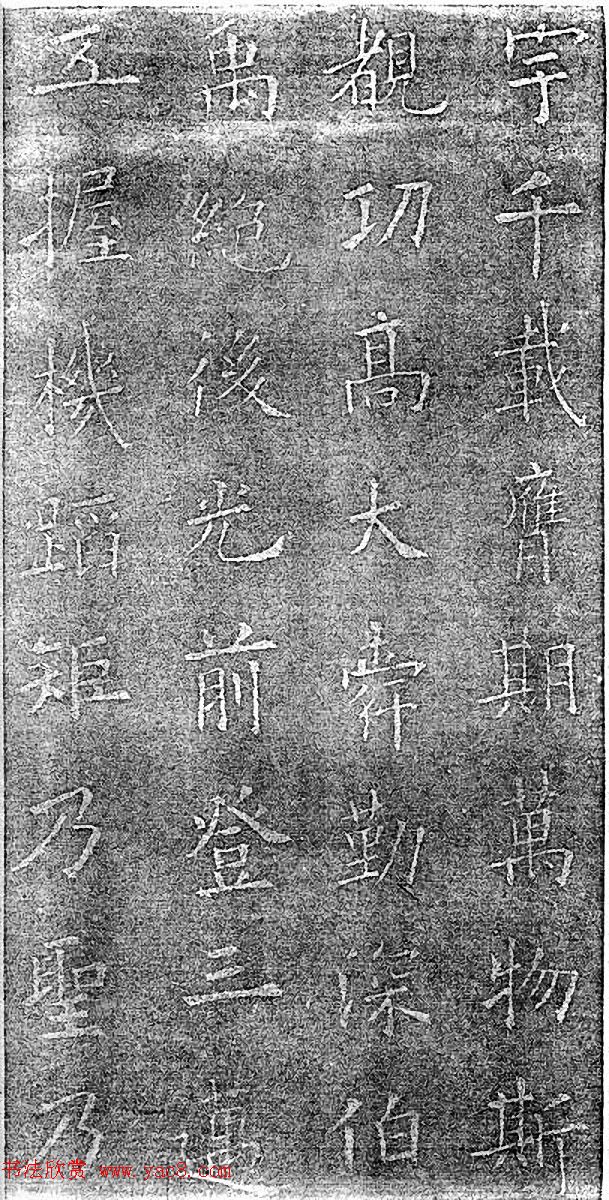 宇千載膺期萬物斯
覩功高大舜勤深伯
禹絕後光前登三邁
五握機蹈矩乃聖乃
书法欣赏 www.yac8.com